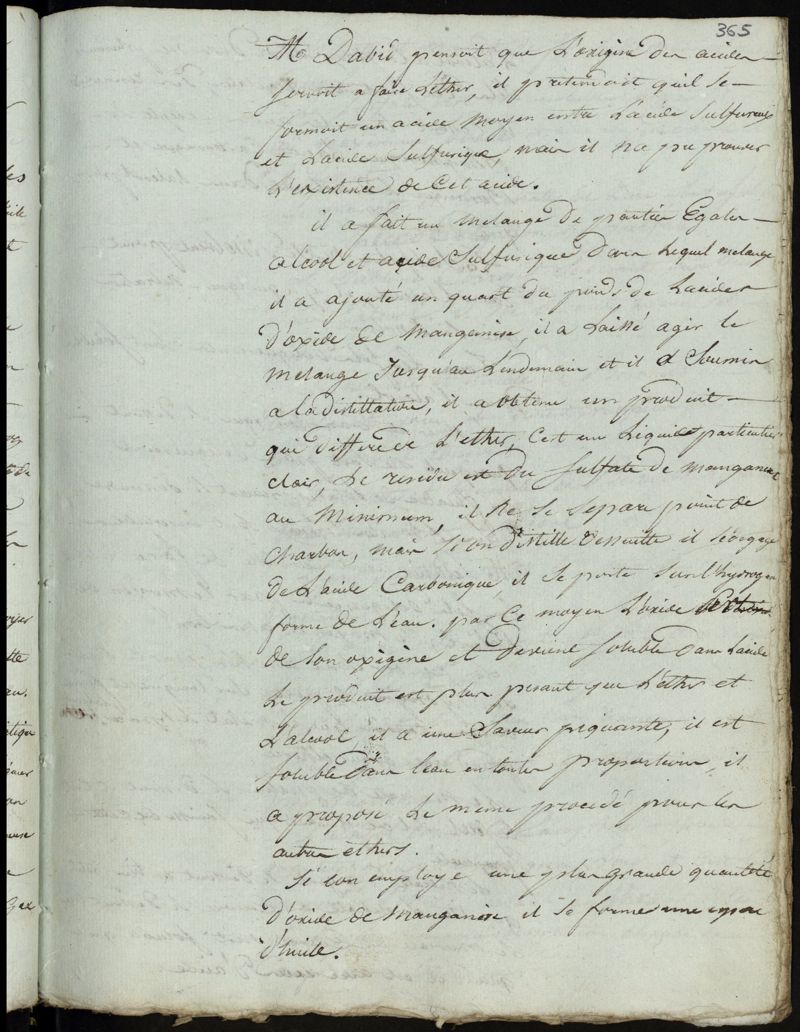 365
M Dabit pensoit que L'oxigène des acides
servoit a faire L'ether, il pretendoit qu'il se
formoit un acide moyen entre L'acide Sulfureux
et L'acide Sulfurique, mais il n'a pu prouver
L'existence de Cet acide.
il a fait un melange de parties Egales
alcool et acide Sulfurique dans Lequel melange
il a ajouté un quart du poids de L'acide
d'oxide de manganèse, il a Laissé agir le
melange Jusqu'au Lendemain et il a Soumis
a la distillation, il a obtenu un produit
qui differe de L'ether, C'est un Liquide particulier
clair, Le residu est du Sulfate de manganese
au Minimum, il Ne Se Separe point de
charbon, mais Si on distille de suitte il se degage
de L'acide Carbonique, il Se porte Sur l'hydrogen
forme de L'eau. par Ce moyen L'oxide
de Son oxigène et devient Soluble dans L'acide
Le produit est plus pesant que L'ether et
L'alcool il a une Saveur piquante, il est
Soluble dans L'eau en toutes proportions, il
a proposé Le même procedé pour les
autres éthers.
Si L'on employe une plus grande quantité
D'oxide de manganèse il Se forme une espece
d'huile.